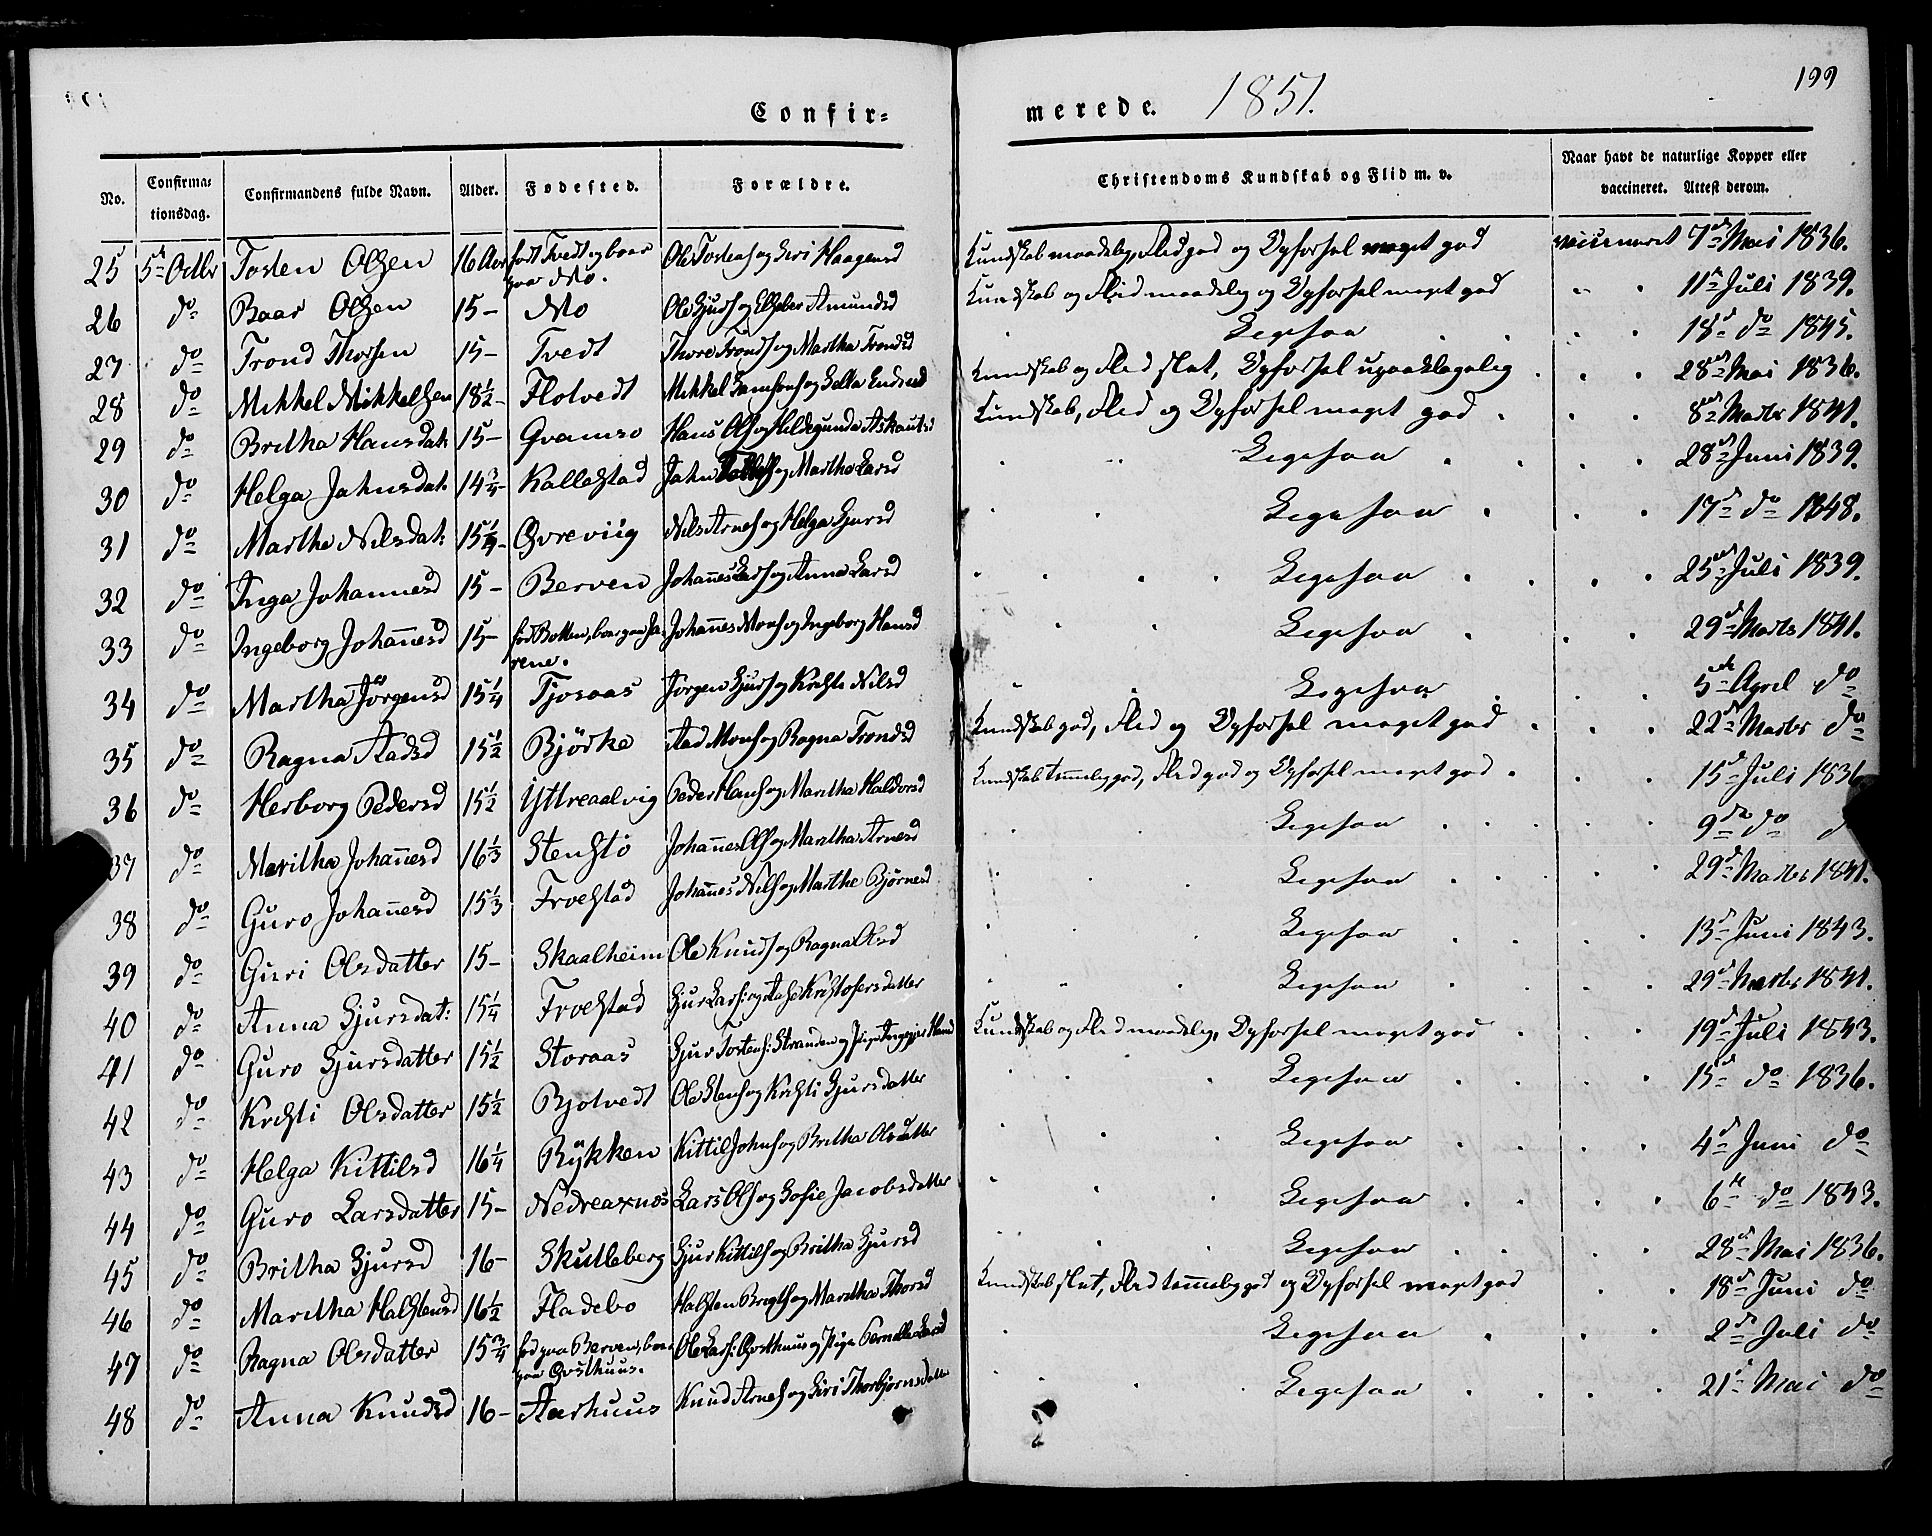 Confir=
merede. 1851.
199
No.
Confirma=
tionsdag.
Confirmandens fulde Navn.
Alder.
Fødested.
Forældre.
Christendoms Kundskab og Flid m. v.
Naar havt de naturlige Kopper eller
vaccineret. Attest derom.
25 5te Octbr Tosten Olsen 16 Aar født Tvedt, boer paa Mo. Ole Tostens og Siri Haagensd Kundskab maadelig, Flid god og Opførsel meget god vaccineret 7de Mai 1836.
26 do Baar Olsen 15- Mo Ole Sjurs og Elsebe Amundsd Kundskab og Flid maadelig og Opførsel meget god 11te Juli 1839.
27 do Trond Thorsen 15- Tvedt Thore Tronds og Martha Trondsd Ligesaa 18d do 1845.
28 do Mikkel Mikkelsen 18½- Flotvedt Mikkel Samsons og Endresd Kundskab og Flid slet, Opførsel upaaklagelig 28de Mai 1836.
29 do Britha Hansdat: 15- Qvamso Hans Ols og Hildegunda Askautsd Kundskab, Flid og Opførsel meget god 8de Marts 1841.
30 do Helga Jahnsdat: 14¾- Kallestad Jahn og Martha Larsd Ligesaa 28de Juni 1839.
31 do Martha Nilsdat: 15¼- Øvreviig Nils Arnes og Helga Sjursd Ligesaa 17d do 1848.
32 do Inga Johannesd 15- Berven Johannes Lars og Anna Larsd Ligesaa 25de Juli 1839.
33 do Ingeborg Johanesd 15- fød Botten, boer paa Ja=
rene. Johannes Mons og Ingeborg Hansd Ligesaa 29d Marts 1841.
34 do Martha Jörgensd 15¼ Tjoraas Jörgen Sjurs og Kristi Nilsd Ligesaa 5te April do
35 do Ragna Aadsd 15½ Bjørke Aad Mons og Ragna Trondsd Kundskab god, Flid og Opførsel meget god 22d Marts do
36 do Herborg Pedersd 15½ Yttreaalvig Peder Hans og Maritha Haldorsd Kundskab temmelig god, Flid god og Opførsel meget god 15d Juli 1836
37 do Maritha Johanesd 16⅓ Stenstø Johannes Ols og Maritha Arnesd Ligesaa 9de do
38 do Guro Johanesd 15⅓ Froestad Johannes Nils og Marthe Bjørnesd Ligesaa 29d Marts 1841.
39 do Guri Olsdatter 15- Skaalheim Ole Knuds og Ragna Olsd Ligesaa 13d Juni 1843.
40 do Anna Sjursdat: 15¼ Froestad Sjur Lars: og Aase Kristofersdatter Ligesaa 29d Marts 1841.
41 do Guro Sjursdatter 15½ Storaas Sjur Tostens: Stranden og Pige Kundskab og Flid maadelig, Opførsel meget god 19d Juli 1843.
42 do Kristi Olsdatter 15½ Bjotvedt Ole Stens og Kristi Sjursdatter Ligesaa 15d do 1836.
43 do Helga Kittilsd 16¼ Rykken Kittil Johns og Britha Olsdatter Ligesaa 4d Juni do
44 do Guro Larsdatter 15- Nedreaxnes Lars Ols og Sofie Jacobsdatter Ligesaa 6te do 1843.
45 do Britha Sjursd 16- Skutleberg Sjur Kittils og Britha Sjursd Ligesaa 28d Mai 1836.
46 do Maritha Halstensd 16½ Fladebo Halsten og Maritha Thorsd Kundskab slet, Flid temmelig god og Opførsel meget god 18d Juni do
47 do Ragna Olsdatter 15¾ fød paa Berven, boer
paa Østhuus. Ole Lars: Østhuus og Pige Pernelle Larsd Ligesaa 2d Juli do
48 do Anna Knudsd 16- Aarhuus Knud Arnes og Siri Thorbjørnsdatter Ligesaa 21d Mai do